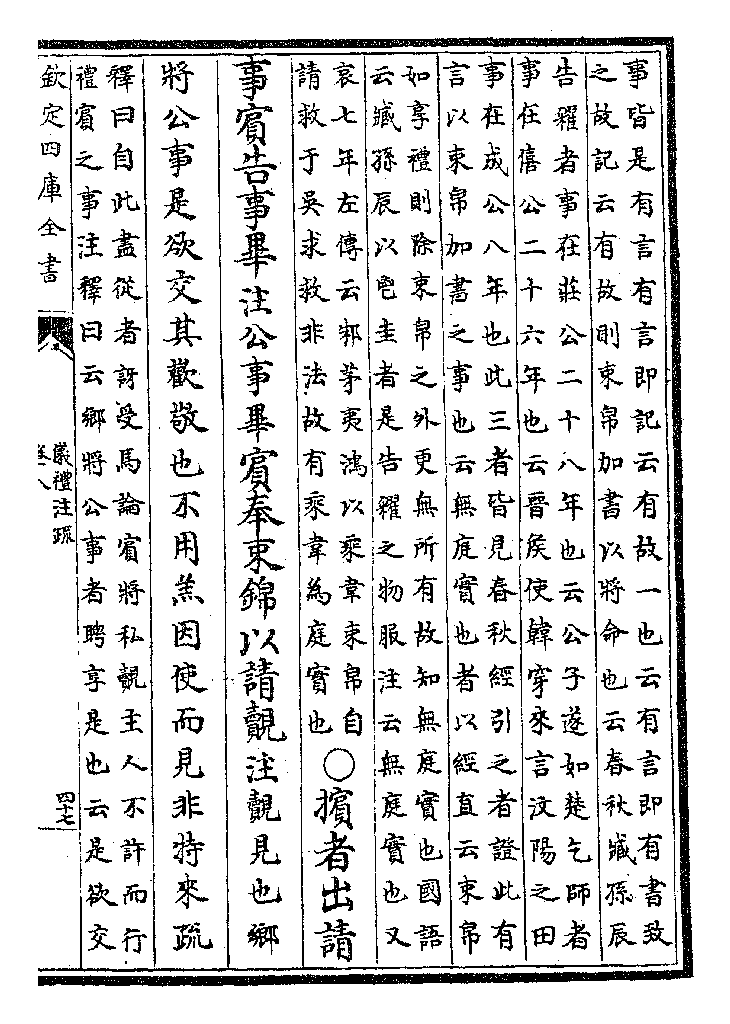 事皆是有言有言即記云有故一也云有言即有書致
之故記云有故則束帛加書以將命也云春秋臧孫辰
告糴者事在莊公二十八年也云公子遂如楚乞師者
事在僖公二十六年也云晉侯使韓穿來言汶陽之田
事在成公八年也此三者皆見春秋經引之者證此有
言以束帛加書之事也云無庭實也者以經直云束帛
如享禮則除束帛之外更無所有故知無庭實也國語
云臧孫辰以鬯圭者是告糴之物服注云無庭實也又
哀七年左傳云邾茅夷鴻以乘韋束帛自
請救于吳求救非法故有乘韋為庭實也
○擯者出請
事賓告事畢注公事畢賓奉束錦以請覿注覿見也鄉
將公事是欲交其歡敬也不用羔因使而見非特來疏
釋曰自此盡從者訝受馬論賓將私覿主人不許而行
禮賓之事注釋曰云鄉將公事者聘享是也云是欲交
欽定四庫全書
儀禮注疏
卷八
四十七